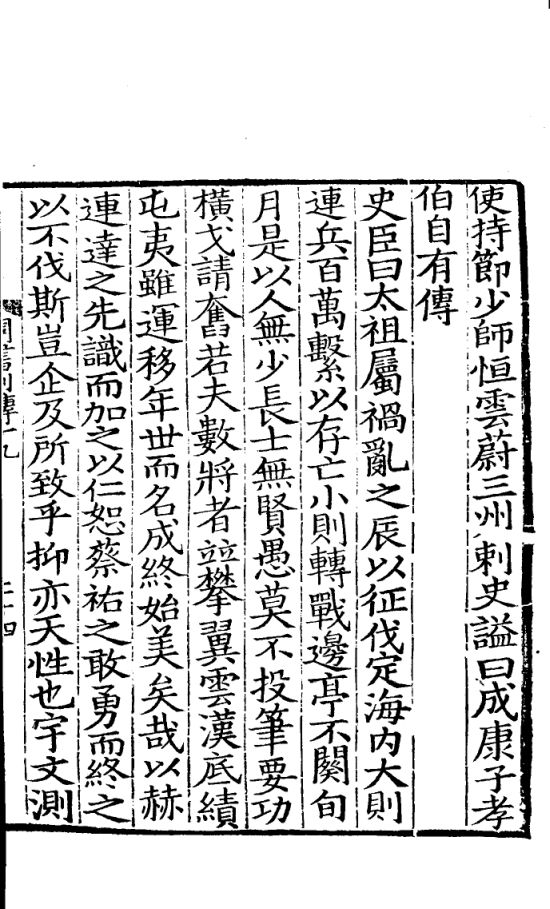 使持節少師恒雲蔚三州刺史謚曰成康子孝
伯自有傳
史臣曰太祖屬禍亂之辰以征伐定海内大則
連兵百萬繫以存亡小則轉戰邊亭不闋旬
月是以人無少長士無賢愚莫不投筆要功
橫戈請奮若夫數將者並攀翼雲漢底績
屯夷雖運移年世而名成終始美矣哉以赫
連達之先識而加之以仁恕蔡祐之敢勇而終之
以不伐斯豈企及所致乎抑亦天性也宇文測
周書列傳十九
二十四